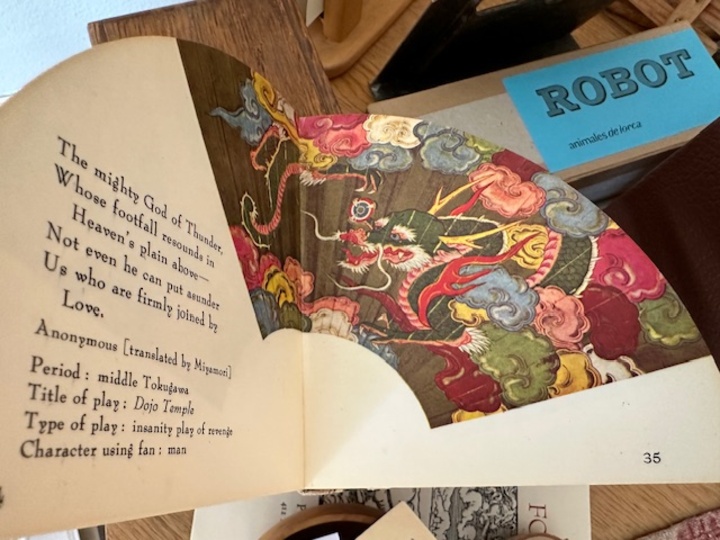 The mighty God of Thunder,
Whose footfall resounds in
Heaven's plain above—
Not even he can put asunder
Us who are firmly joined by
Love.
Anonymous [translated by Miyamori]
Period : middle Tokugawa
Title of play : Dojo Temple
Type of play : insanity play of revenge
Character using fan : man
35
ROBOT
animales de lorca